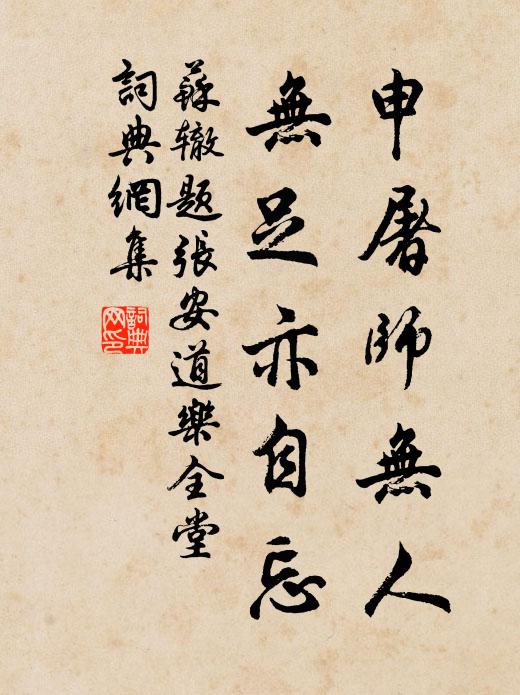 申屠師無人
無足亦自忘
蘇辙题張安道樂全堂
詞典網集
詞典网印